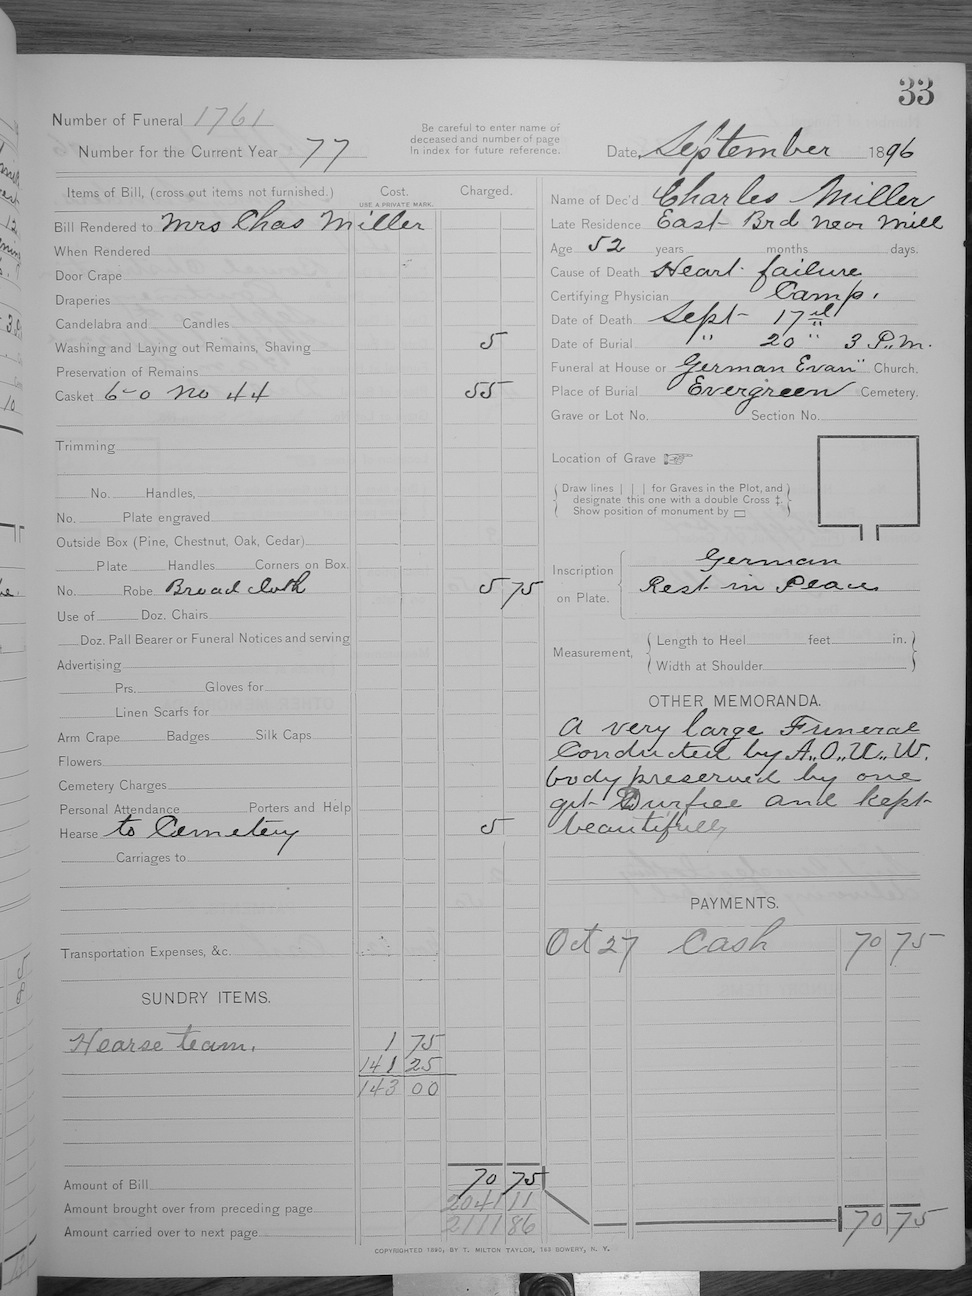 33
Number of Funeral 1761
Number for the Current Year 77
Be careful to enter name of
deceased and number of page
in index for future reference.
Date, September 1896
Items of Bill, (cross out items not furnished.) Cost. Charged.
USE A PRIVATE MARK.
Bill Rendered to Mrs Chas Miller
When Rendered
Door Crape
Draperies
Candelabra and Candles
Washing and Laying out Remains, Shaving 5
Preservation of Remains
Casket 6-0 No 44 55
Trimming
No. Handles,
No. Plate engraved
Outside Box (Pine, Chestnut, Oak, Cedar)
Plate Handles Corners on Box.
No. Robe Broad cloth 5 75
Use of Doz. Chairs
Doz. Pall Bearer or Funeral Notices and serving
Advertising
Prs. Gloves for
Linen Scarfs for
Arm Crape Badges Silk Caps
Flowers
Cemetery Charges
Personal Attendance Porters and Help
Hearse to Cemetery 5
Carriages to
Transportation Expenses, &c.
SUNDRY ITEMS.
Hearse team. 1 75
141 25
143 00
Amount of Bill 70 75
Amount brought over from preceding page 2041 11
Amount carried over to next page 2111 86
Name of Dec'd Charles Miller
Late Residence East Brd near Mill
Age 52 years months days.
Cause of Death Heart failure
Certifying Physician Camp.
Date of Death Sept 17
Date of Burial " 20 " 3 P.M.
Funeral at House or German Evan" Church.
Place of Burial Evergreen Cemetery.
Grave or Lot No. Section No.
Location of Grave ☞
Draw lines | | | for Graves in the Plot, and
designate this one with a double Cross ‡.
Show position of monument by ▭
Inscription on Plate. German
Rest in Peace
Measurement, Length to Heel feet in.
Width at Shoulder
OTHER MEMORANDA.
A very large Funeral
Conducted by A.O.U.W.
body preserved by one
Durfee and kept
beautifully
PAYMENTS.
Oct 27 Cash 70 75
70 75
COPYRIGHTED 1890, BY T. MILTON TAYLOR, 183 BOWERY, N. Y.